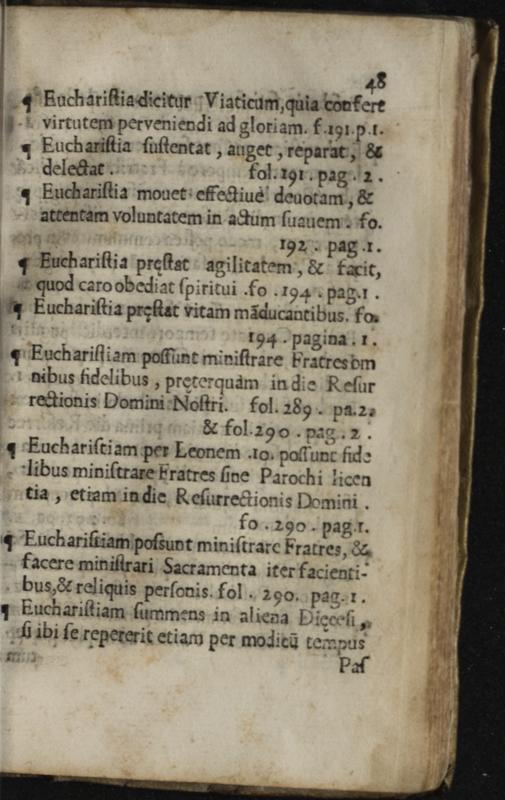 48
¶ Euchariſtia dicitur Viaticum, quia confert
virtutem perveniendi ad gloriam. f.191.p.1.
¶ Euchariſtia ſuſtentat, auget, reparat, &
delectat. fol.191. pag. 2.
¶ Euchariſtia mouet effectiuè deuotam, &
attentam voluntatem in actum ſuauem. fo.
192. pag.1.
¶ Euchariſtia pręſtat agilitatem, & facit,
quod caro obediat ſpiritui .fo .194. pag.1.
¶ Euchariſtia pręſtat vitam māducantibus. fo.
194. pagina. 1.
¶ Euchariſtiam poſſunt miniſtrare Fratres om
nibus fidelibus, pręterquàm in die Reſur
rectionis Domini Noſtri. fol. 289. pa.2.
& fol.290. pag. 2.
¶ Euchariſtiam per Leonem .10. poſſunt fide
libus miniſtrare Fratres ſine Parochi licen
tia, etiam in die Reſurrectionis Domini.
fo. 290. pag.1.
¶ Euchariſtiam poſſunt miniſtrare Fratres, &
facere miniſtrari Sacramenta iter facienti-
bus,& reliquis perſonis. fol. 290. pag. 1.
¶ Euchariſtiam ſummens in aliena Dięceſi,
ſi ibi ſe repererit etiam per modicū tempus
Paſ